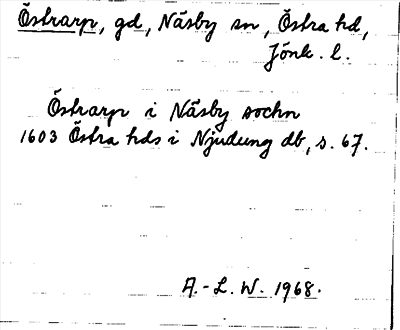 Östrarp, gd, Näsby sn, Östra hd,
Jönk. l.
Östrarp i Näsby sochn
1603 Östra hds i Njudung db, s. 67.
A.-L. W. 1968.